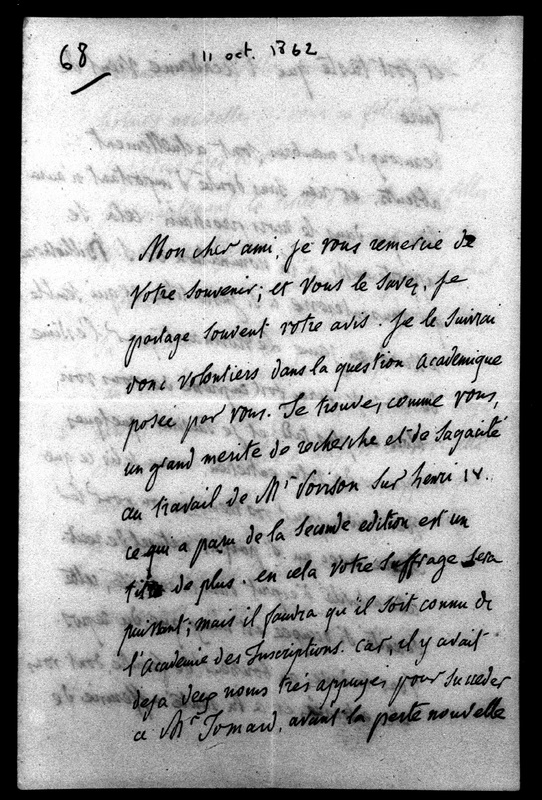 68
11 oct. 1862
Mon cher ami, je vous remercie de
votre souvenir; et vous le savez, je
partage souvent votre avis. Je le suivrai
donc volontiers dans la question académique
posée par vous. Je trouve, comme vous,
un grand merite de recherche et de sagacité
au travail de Mr Poirson sur henri IV.
ce qui a paru de la seconde edition est un
titre de plus. en cela votre suffrage sera
puissant; mais il faudra qu'il soit connu de
l'Academie des Inscriptions. car, il y avait
deja deux noms très appuyés pour succeder
a Mr Jomard, avant la perte nouvelle